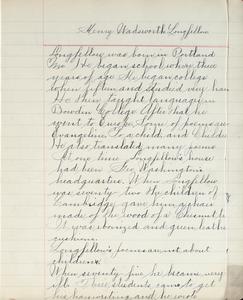 Henry Wadsworth Longfellow
Longfellow was born in Portland
Me. He began school when three
years of age. He began college
when fifteen and studied very har
He then taught language in
Bowdin College. After that he
went to Europe. Some of poems are
Evangeline, To a child, and Childre
He also translated many poems
At one time Longfellow's house
had been Geo. Washington
headquarters. When Longfellow
was seventy-two the children of
Cambridge gave him a chair
made of the wood of a Chesnut t
It was bronzed and green leathe
cushions.
Longfellow's poems are not about
children.
When seventy-five he became very
ill. Three students came to get
his handwriting and he wrote